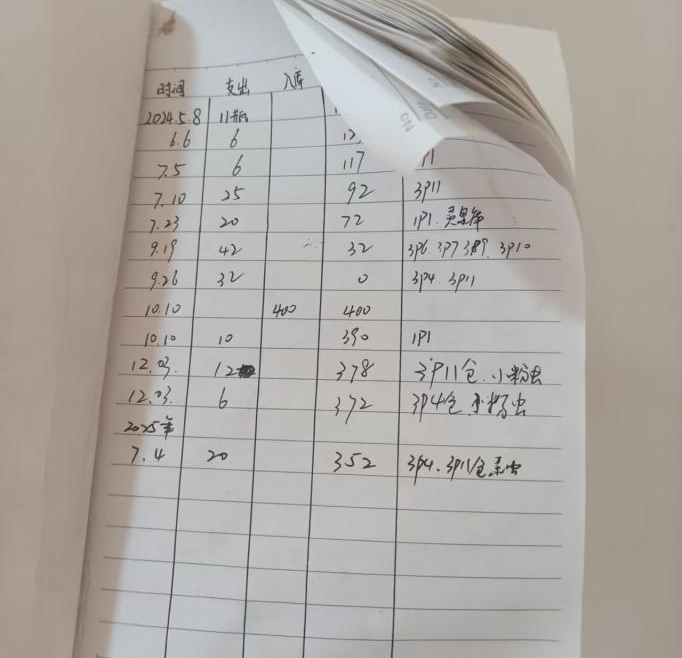 时间 支出 入库
2024.5.8 11瓶
6.6 6
7.5 6 117
7.10 25 92 3P11
7.23 20 72 1P1.
9.19 42 32 3P6. 3P7 3P9. 3P10
9.26 32 0 3P4 3P11
10.10 400 400
10.10 10 390 1P1
12.03. 12 378 3P11仓.小粉虫
12.03. 6 372 3P4仓 虫
2025年
7.4 20 352 3P4.3P11仓 虫
No
Date
No